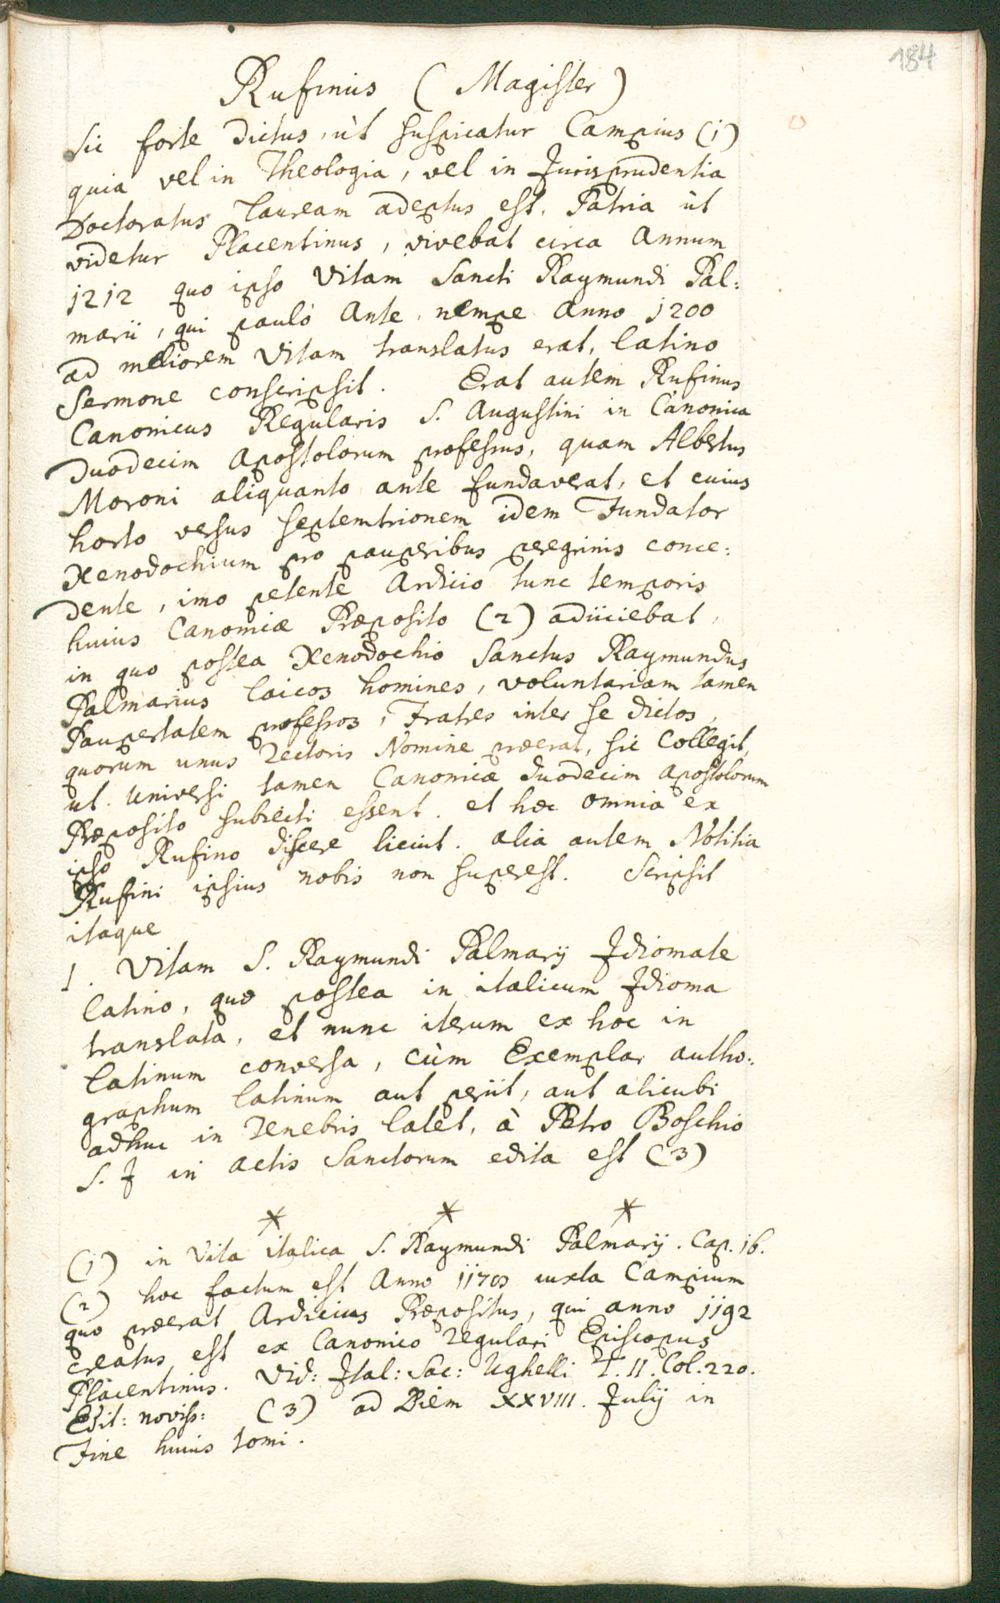 184
Rufinus (Magister)
Sic forte dictus, ùt suspicatur Campius (1)
quia vel in Theologia, vel in Jurisprudentia
Doctoratus lauream adeptus est. Patria ùt
videtur Placentinus, vivebat circa Annum
1212 quo ipso Vitam Sancti Raymundi Pal:
marii, qui paulò Ante, nempe Anno 1200
ad meliorem Vitam translatus erat, latino
Sermone conscripsit. Erat autem Rufinus
Canonicus Regularis S. Augustini in Canonica
Duodecim Apostolorum professus, quam Albertus
Moroni aliquanto ante fundaverat, et cuius
horto versus septemtrionem idem Fundator
Xenodochium pro pauperibus peregrinis conce:
dente, imo petente Ardicio tunc temporis
huius Canonicæ Præposito (2) adiiciebat,
in quo postea Xenodochio Sanctus Raymundus
Palmarius laicos homines, voluntariam tamen
Paupertatem professos, Fratres inter se dictos,
quorum unus Rectoris Nomine præerat, sic Collegit,
ut Universi tamen Canonicæ duodecim apostolorum
Præposito subiecti essent. et hæc omnia ex
ipso Rufino discere licuit. alia autem Notitia
Rufini ipsius nobis non superest. Scripsit
itaque
1. Vitam S. Raymundi Palmarij Idiomate
latino, quæ postea in italicum Idioma
translata, et nunc iterum ex hoc in
latinum conversa, cùm Exemplar autho:
graphum latinum aut periit, aut alicubi
adhuc in Tenebris latet, à Petro Boschio
S. J in actis Sanctorum edita est (3)
* * *
(1) in Vita italica S. Raymundi Palmarij. Cap. 16.
(2) hoc factum est Anno 1170 iuxta Campium
quo præerat Ardicius Præpositus, qui anno 1192
creatus est ex Canonico Regulari Episcopus
Placentinus. Vid: Ital: Sac: Ughelli T. II. Col. 220.
Edit: noviss: (3) ad Diem XXVIII. Julij in
Fine huius tomi.